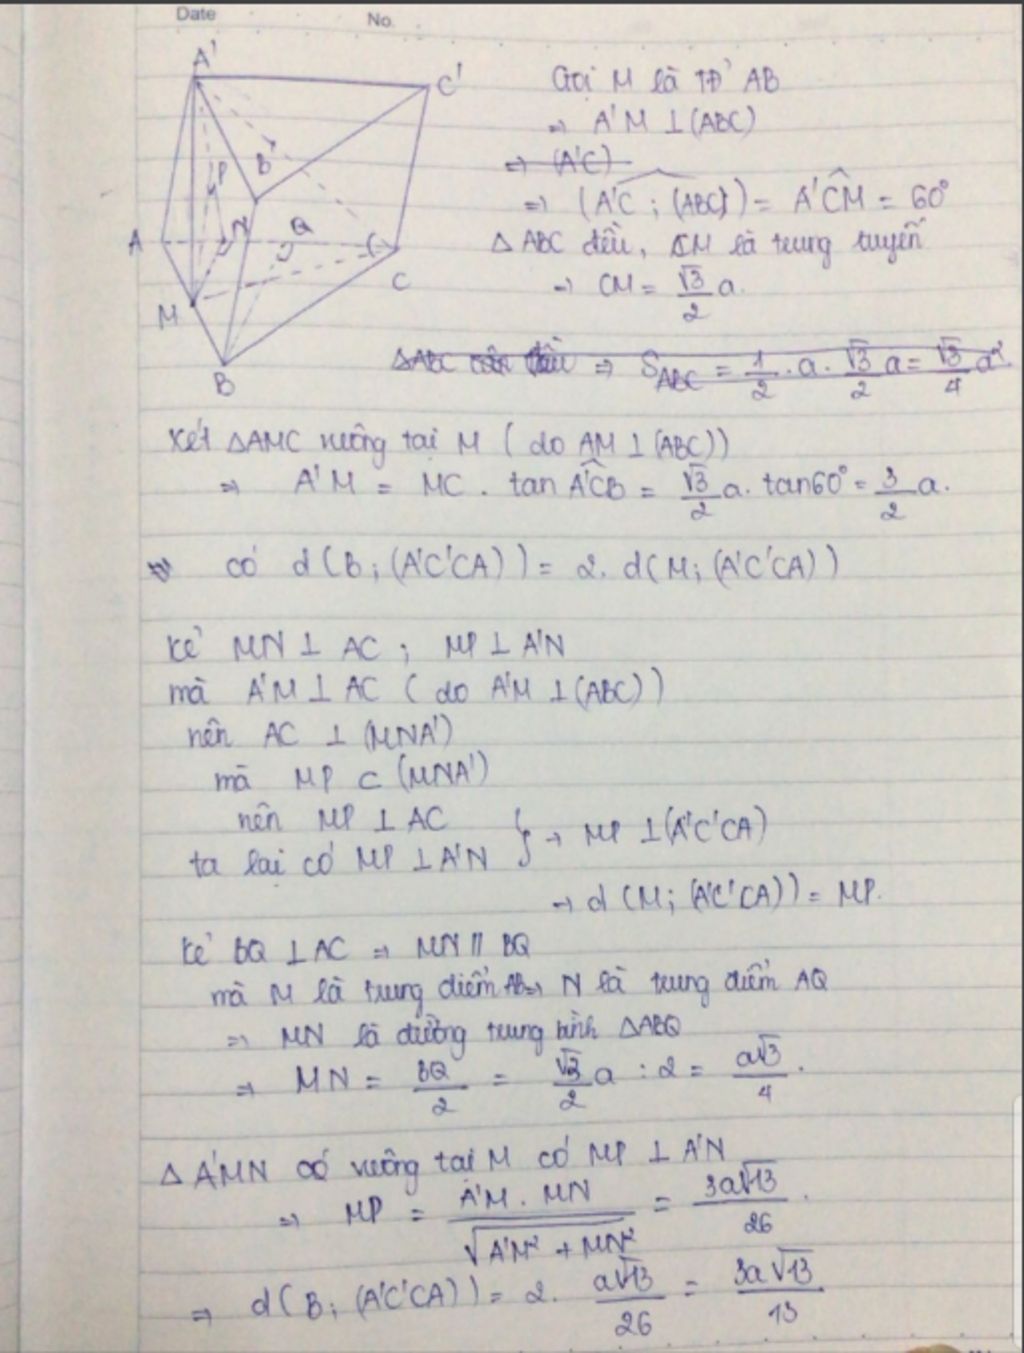 Date No.
A' C' B' P N Q A M B C
Gọi M là TĐ' AB
⇒ A'M ⊥ (ABC)
⇒ (A'C)
⇒ (A'C ; (ABC)) = A'CM = 60°
Δ ABC đều, CM là trung tuyến
⇒ CM = √3/2 a.
ΔABC đều ⇒ S_ABC = 1/2 . a . √3/2 a = √3/4 a²
Xét ΔAMC vuông tại M ( do AM ⊥ (ABC))
⇒ A'M = MC . tan A'CB = √3/2 a. tan60° = 3/2 a.
⇒ có d(B; (A'C'CA)) = 2. d(M; (A'C'CA))
Kẻ MN ⊥ AC ; MP ⊥ A'N
mà A'M ⊥ AC ( do A'M ⊥ (ABC))
nên AC ⊥ (MNA')
mà MP ⊂ (MNA')
nên MP ⊥ AC
ta lại có MP ⊥ A'N } → MP ⊥ (A'C'CA)
→ d (M; (A'C'CA)) = MP.
Kẻ BQ ⊥ AC ⇒ MN // BQ
mà M là trung điểm AB ⇒ N là trung điểm AQ
⇒ MN là đường trung bình ΔABQ
⇒ MN = BQ/2 = √3/2 a : 2 = a√3/4 .
Δ A'MN có vuông tại M có MP ⊥ A'N
⇒ MP = A'M . MN / √A'M² + MN² = 3a√13/26 .
⇒ d(B; (A'C'CA)) = 2. a√13/26 = 3a√13/13